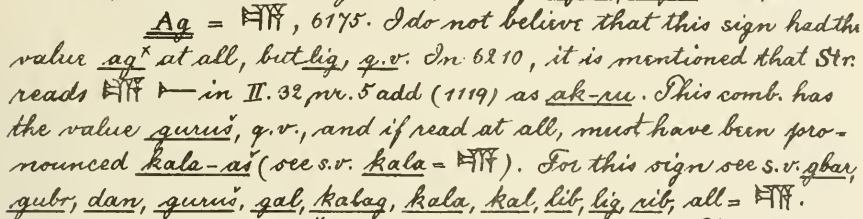 Ag = 𒆗, 6175. I do not believe that this sign had the
value agˣ at all, but lig, q.v. In 6210, it is mentioned that Str.
reads 𒆗 𒀸 in II. 32, nr. 5 add (1119) as ak-ru. This comb. has
the value guruš, q.v., and if read at all, must have been pro-
nounced kala-aš (see s.v. kala = 𒆗). For this sign see s.v. gbar,
gubr, dan, guruš, gal, kalag, kala, kal, lib, lig, rib, all = 𒆗.